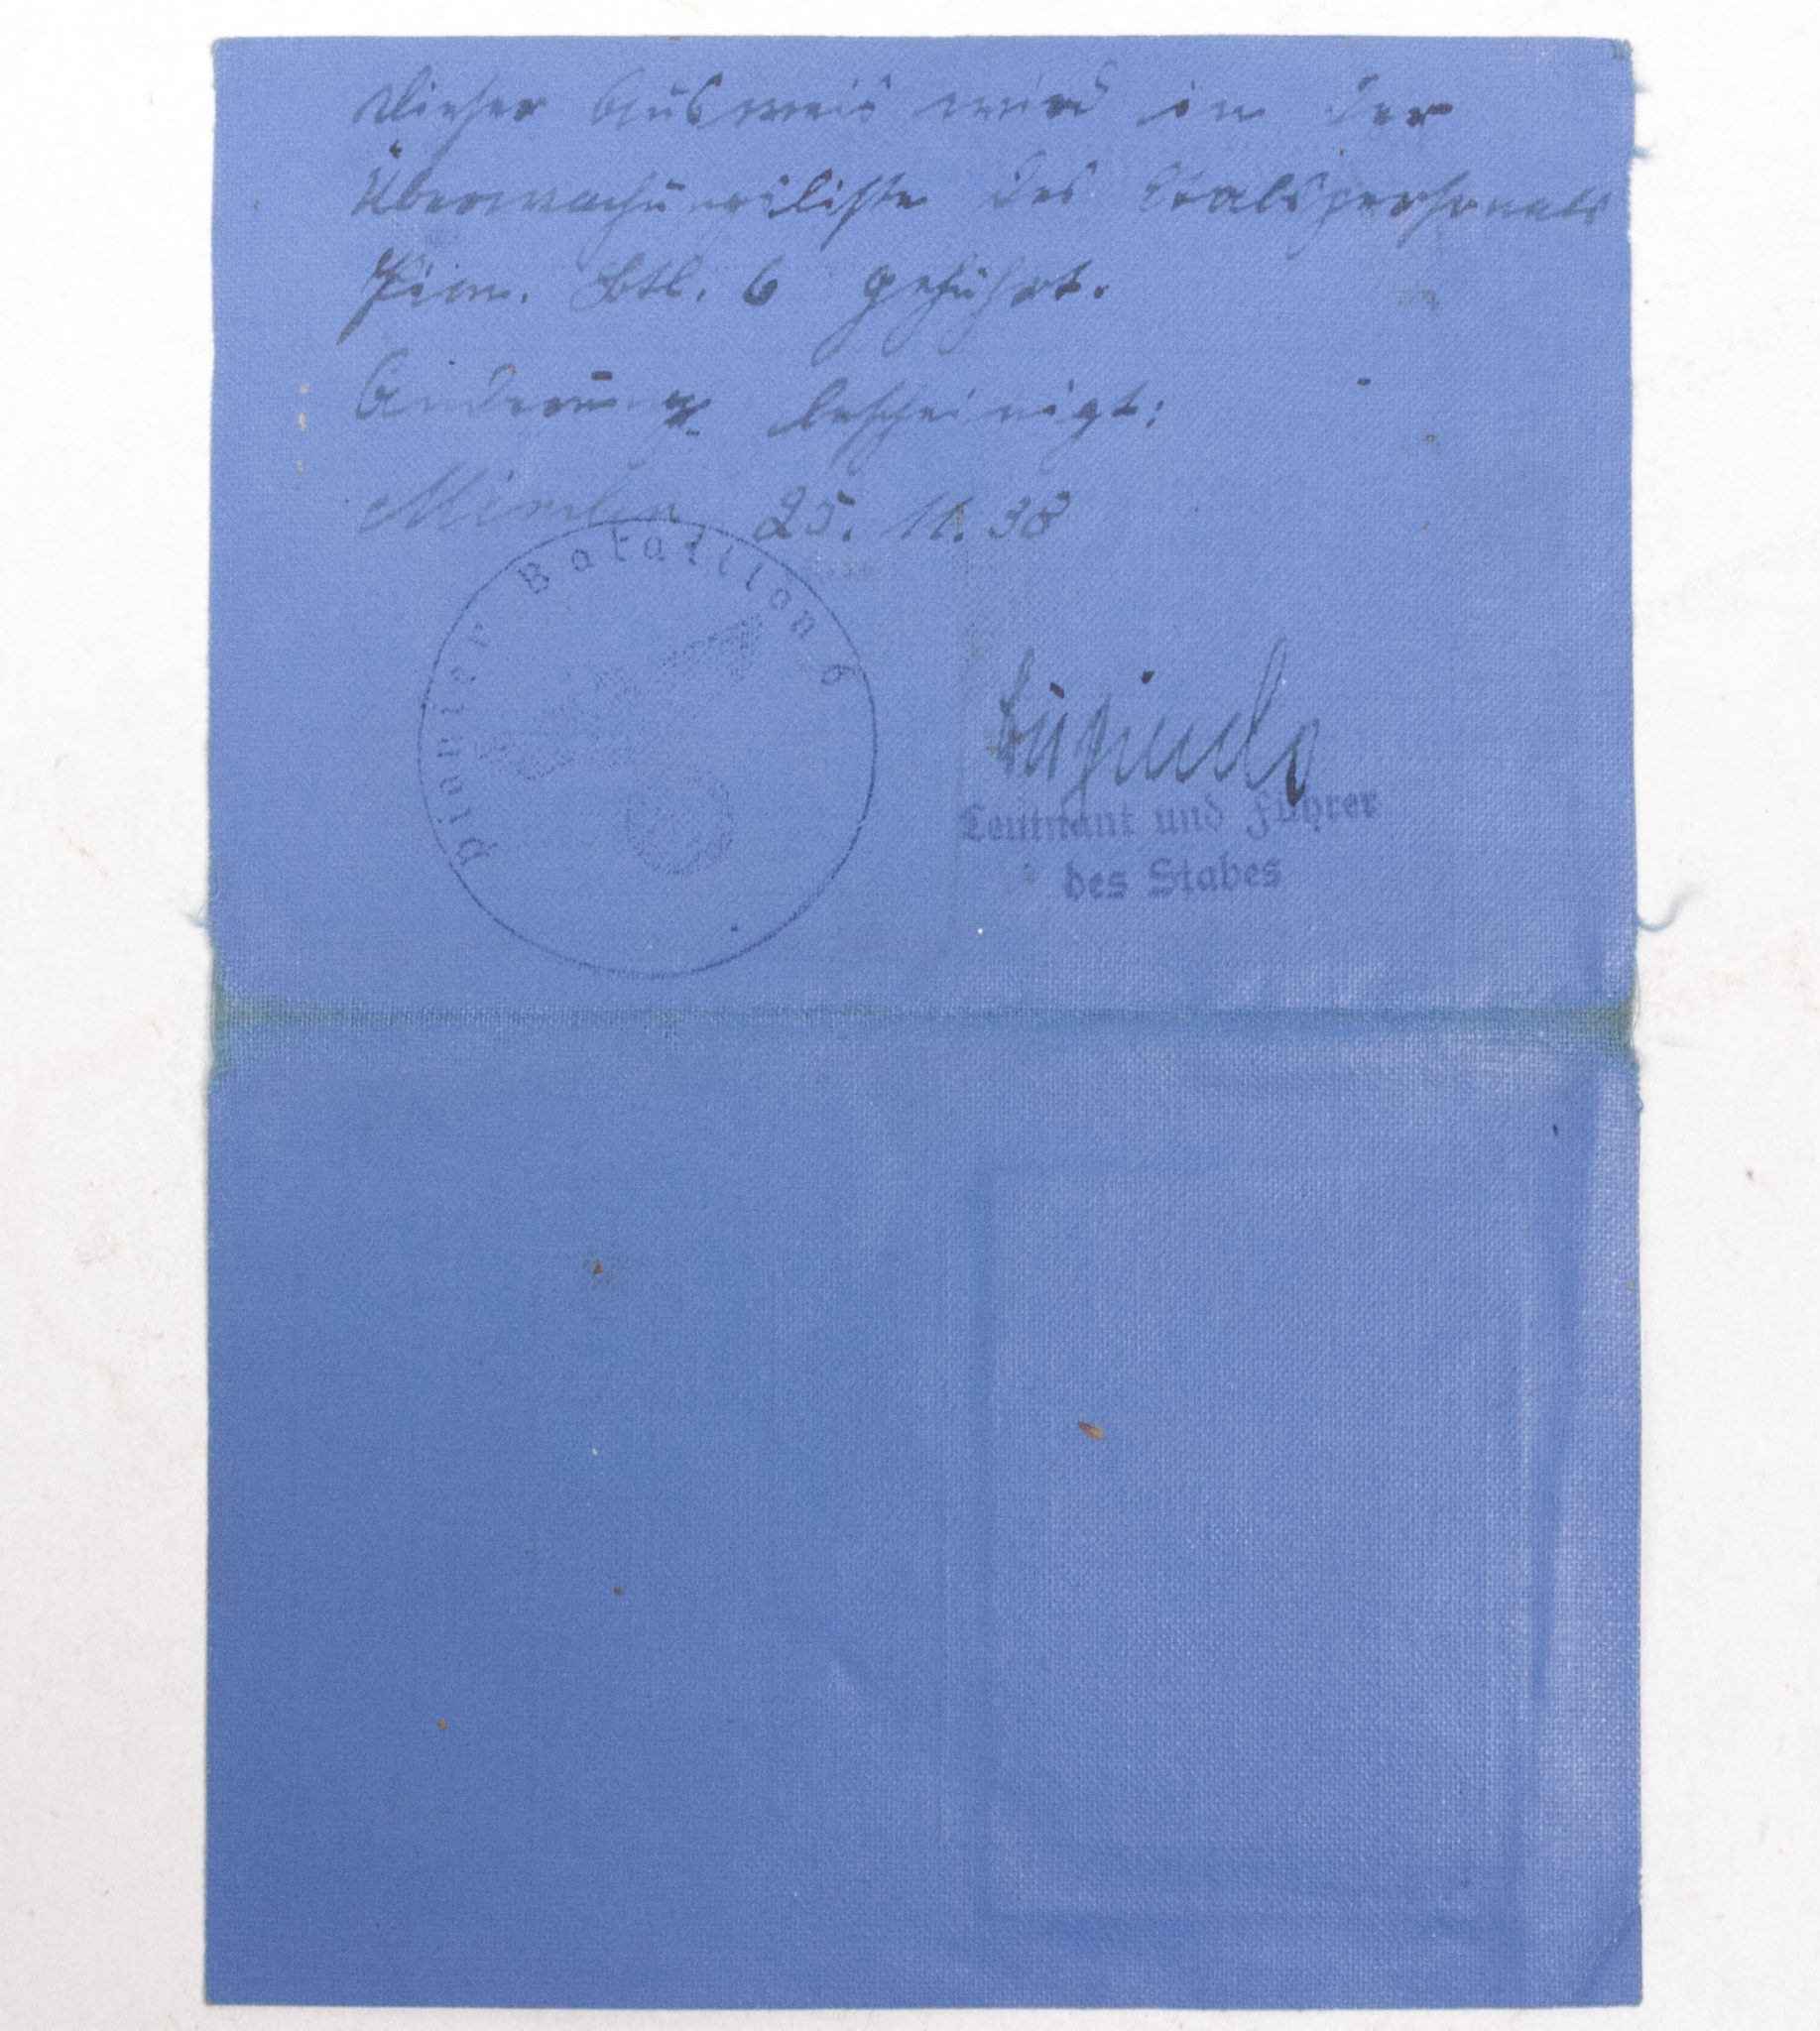 Dieser Ausweis wird in der
Überwachungsliste des
Pion. Btl. 6 geführt.
Änderung bescheinigt:
Minden, 25. 11. 38
Pionier Bataillon 6
Leutnant und Führer
des Stabes